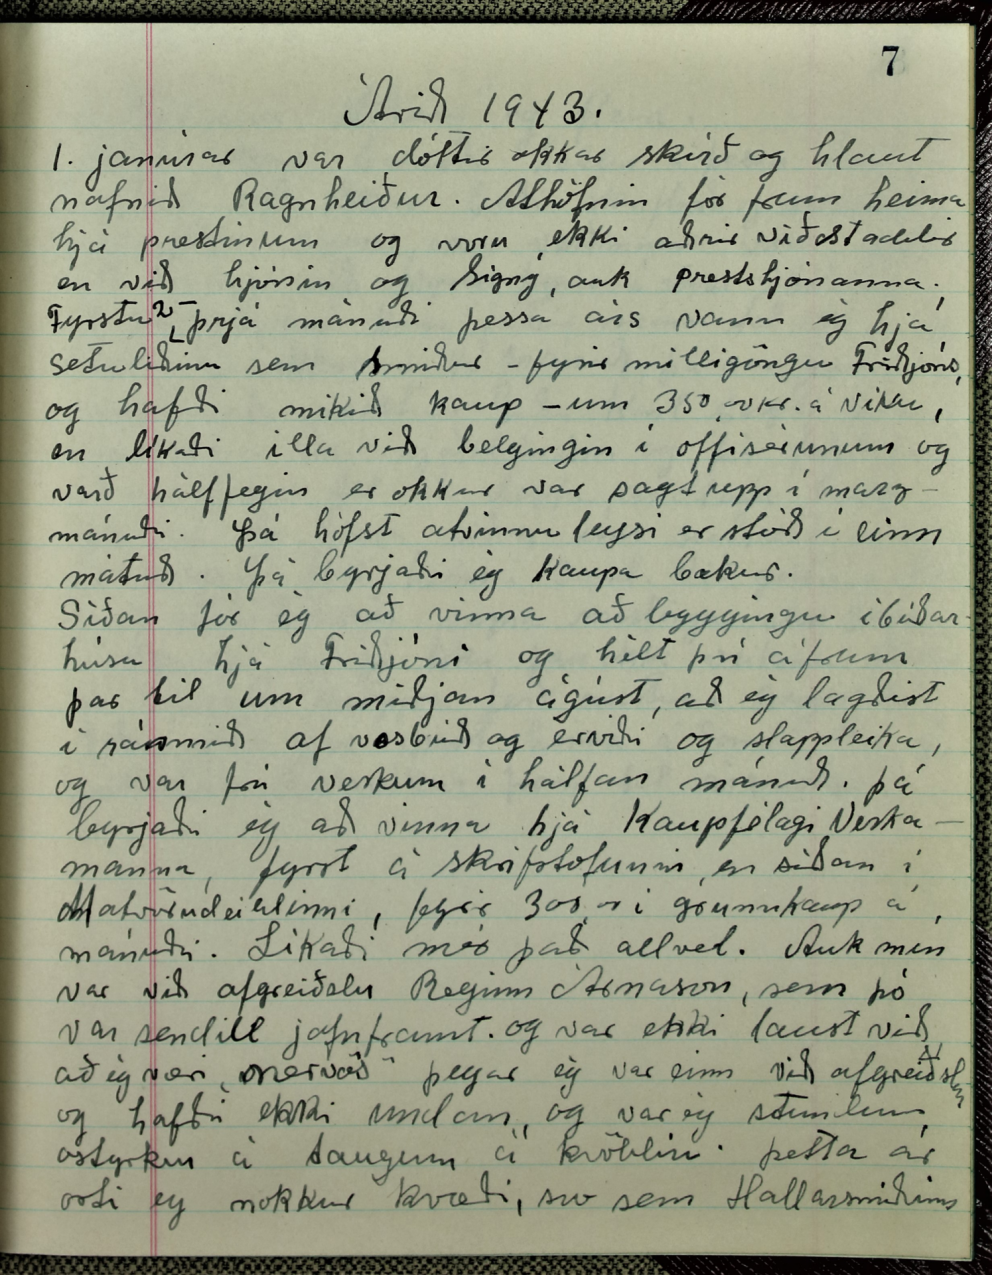 7
Árið 1943.
1. janúar var dóttir okkar skírð og hlaut
nafnið Ragnheiður. Athöfnin fór fram heima
hjá prestinum og voru ekki aðrir viðstaddir
en við hjónin og Signý, auk prestshjónanna.
Fyrstu 2- þrjá mánuði þessa árs vann ég hjá
setuliðinu sem smiður - fyrir milligöngu Friðjóns,
og hafði mikið kaup - um 350 kr. á viku,
en líkaði illa við belgingin í offisérunum og
varð hálffegin er okkur var sagt upp í marz-
mánuði. Þá hófst atvinnuleysi er stóð í einn
mátuð. Þá byrjaði ég kaupa bækur.
Síðan fór ég að vinna að byggingu íbúðar-
húsa hjá Friðjóni og hélt því áfram
þar til um miðjan ágúst, að ég lagðist
í rúmið af vosbúð og erviði og slappleika,
og var frá verkum í hálfan mánuð. þá
byrjaði ég að vinna hjá Kaupfélagi Verka-
manna, fyrst á skrifstofunni, en síðan í
Matvörudeildinni, fyrir 300 í grunnkaup á
mánuði. Líkaði mér það allvel. Auk mín
var við afgreiðslu Reginn Árnason, sem þó
var sendill jafnframt. og var ekki laust við
að ég væri "nervös" þegar ég var einn við afgreiðslu
og hafði ekki undan, og var ég stundum
óstyrkur á taugum á kvöldin. þetta ár
orti ég nokkur kvæði, svo sem Hallarsmiðinn